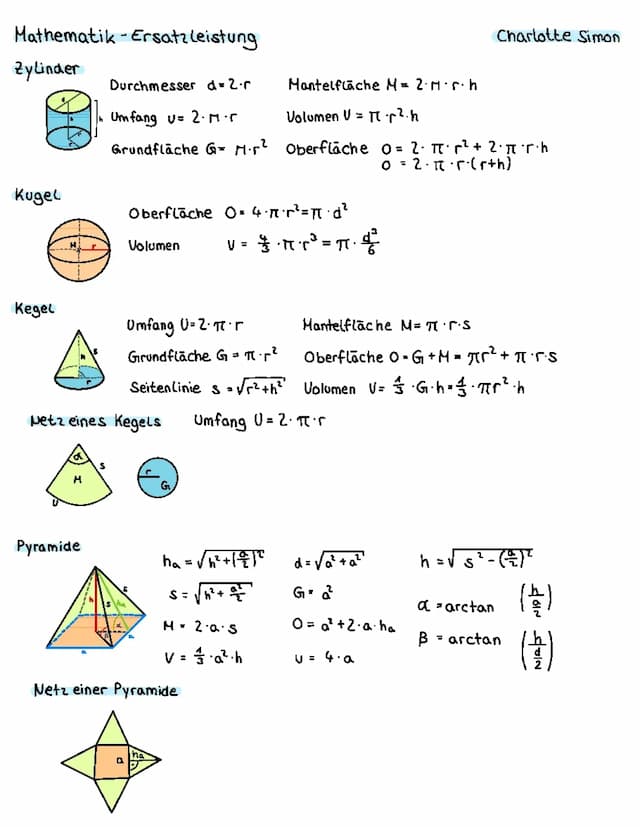 Mathematik - Ersatzleistung Charlotte Simon
Zylinder
Durchmesser d = 2·r Mantelfläche M = 2·π·r·h
Umfang u = 2·π·r Volumen V = π·r²·h
Grundfläche G = π·r² Oberfläche O = 2·π·r² + 2·π·r·h
O = 2·π·r·(r+h)
Kugel
Oberfläche O = 4·π·r² = π·d²
M r
Volumen V = 4/3·π·r³ = π·d³/6
Kegel
Umfang U = 2·π·r Mantelfläche M = π·r·s
Grundfläche G = π·r² Oberfläche O = G + M = πr² + π·r·s
h s r
Seitenlinie s = √(r²+h²) Volumen V = 1/3·G·h = 1/3·πr²·h
Netz eines Kegels Umfang U = 2·π·r
α s M U
r G
Pyramide
hₐ = √(h²+(a/2)²) d = √(a²+a²) h = √(s²-(a/2)²)
s = √(h²+a²/2) G = a² α = arctan (h/(a/2))
M = 2·a·s O = a²+2·a·hₐ β = arctan (h/(d/2))
V = 1/3·a²·h u = 4·a
Netz einer Pyramide
a hₐ